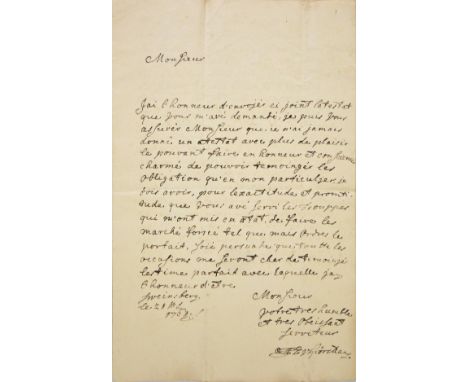 Monsieur
J'ai l'honneur d'envojér ci joint l'atestat
que vous m'avé demanté, je puis vous
assurér Monsieur que je n'ai jamais
donné un atestat avec plus de plaisir
le pouvant faire en honneur et conscience
charmé de pouvoir temoingér les
obligation qu'en mon particulier je
dois avoir, pour l'exactitude et promti-
tude que vous avé servi les trouppes
qui m'ont mis en état de faire les
marché forcé tel que mais ordres le
portait. soié persuadé que toutte les
occasions me seront cher de temoingé
l'estime parfait avec laquelle j'ay
l'honneur d'etre
Monsieur
votre tres humble
et tres obeissant
serviteur